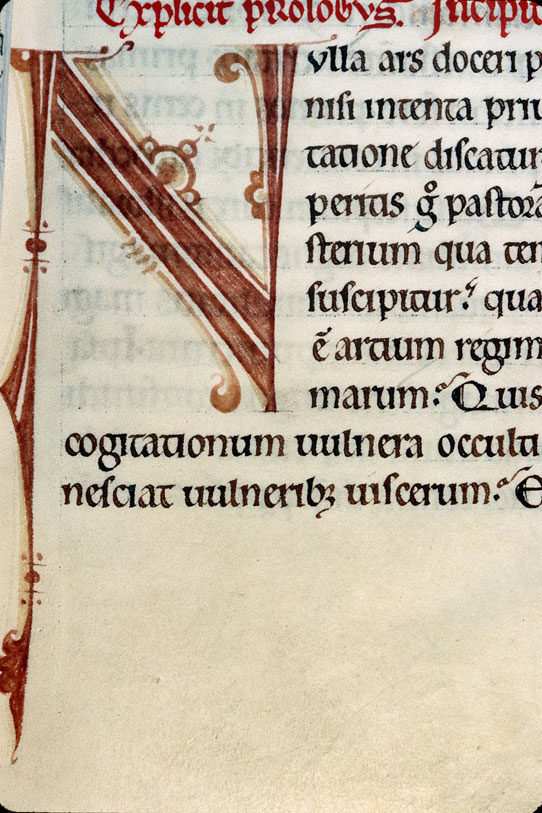 Explicit pRoloGVS. Incipi
Nvlla ars doceri p
nisi intenta priu
tatione discatur
peritis gͦ pastora
sterium qua tem
suscipitur? qua
ē artium regim
marum? Quis
cogitationum uulnera occulti
nesciat uulneribꝫ uiscerum? E